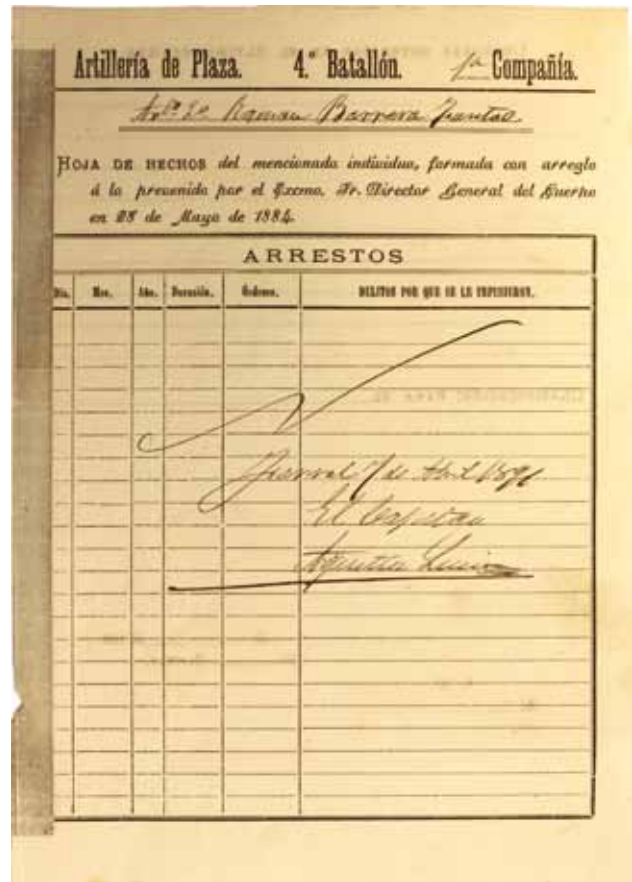 Artillería de Plaza. 4.º Batallón. 1ª Compañía.
Art.º 2º Ramon Barrera
HOJA DE HECHOS del mencionado individuo, formada con arreglo
á lo prevenido por el Excmo. Sr. Director General del Cuerpo
en 28 de Mayo de 1884.
ARRESTOS
Día. Mes. Año. Duración. Órdenes. DELITOS POR QUE SE LE IMPUSIERON.
7 de Abril 1891
El Capitan